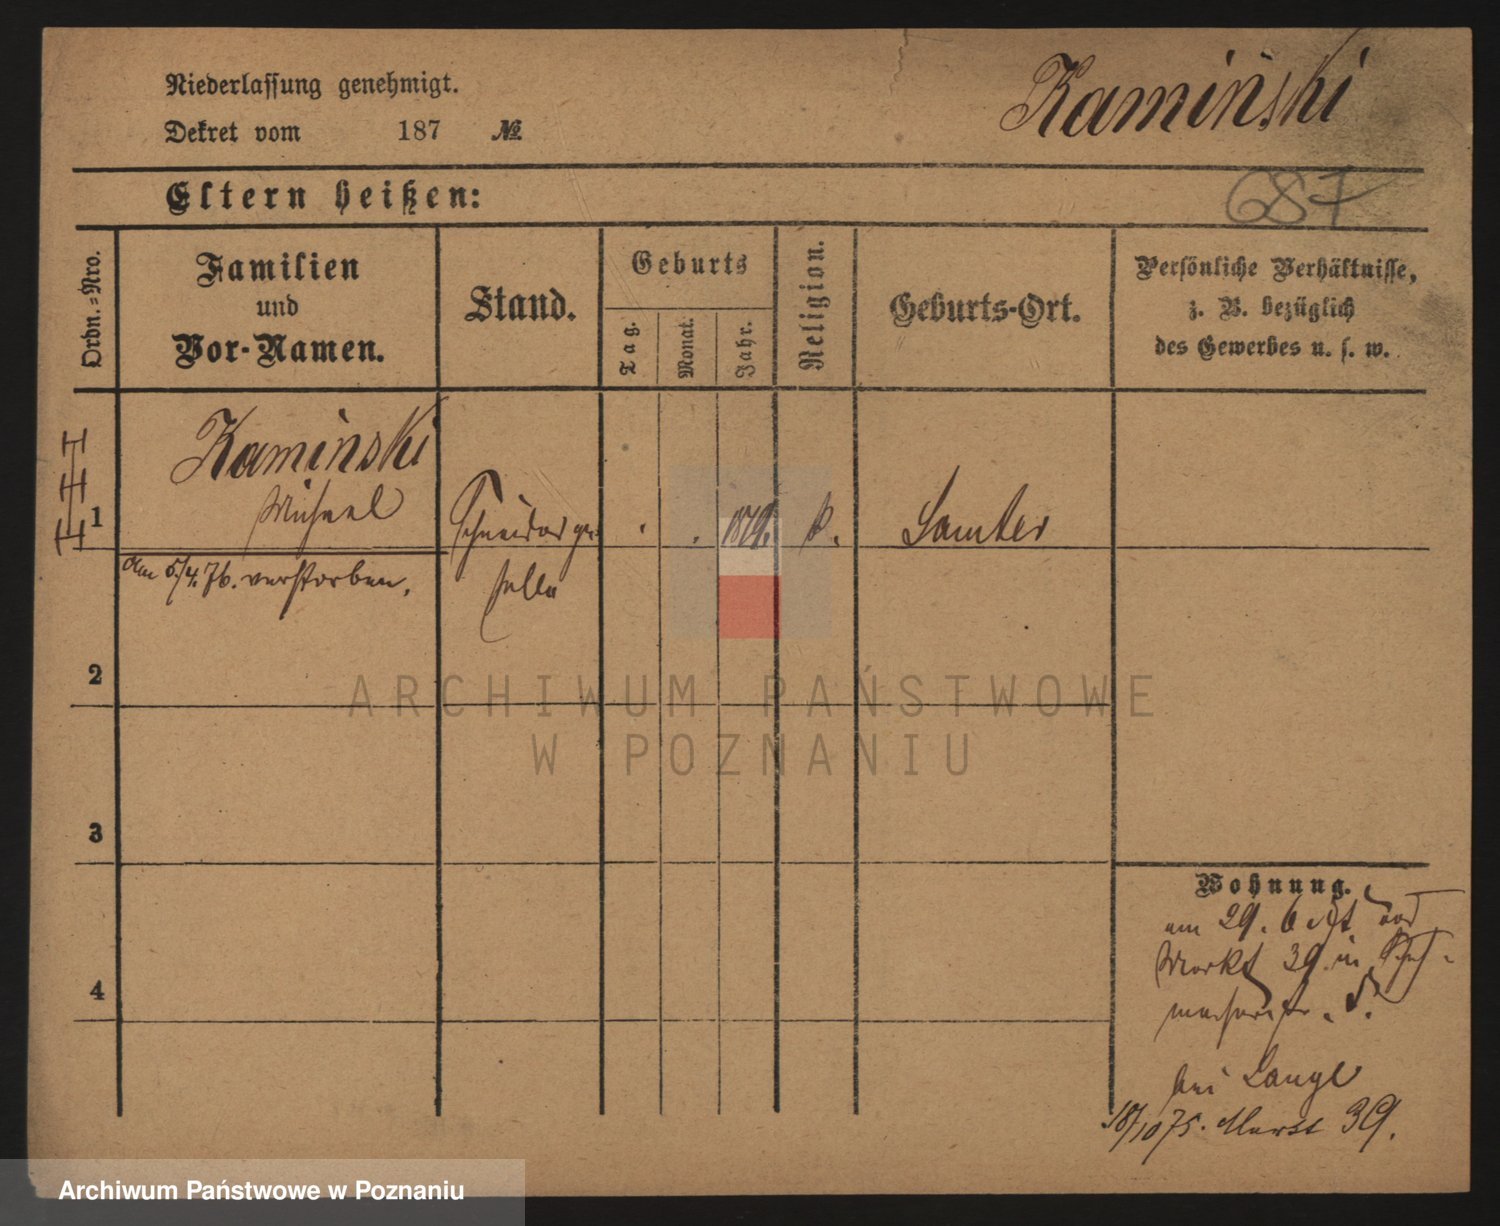 Niederlassung genehmigt.
Dekret vom 187 №
Kamiński
Eltern heißen:
687
Ordn.=Nro.
Familien
und
Vor-Namen.
Stand.
Geburts
Tag.
Monat.
Jahr.
Religion.
Geburts-Ort.
Persönliche Verhältnisse,
z. B. bezüglich
des Gewerbes u. s. w.
1
Kaminski
Michael
Schneiderge-
selle
k.
Samter
am 5/4. 76. verstorben.
2
ARCHIWUM PAŃSTWOWE
W POZNANIU
3
4
Wohnung.
am 29. 6
Markt 39 in
bei Lange
18/10 75. Markt 39.
Archiwum Państwowe w Poznaniu